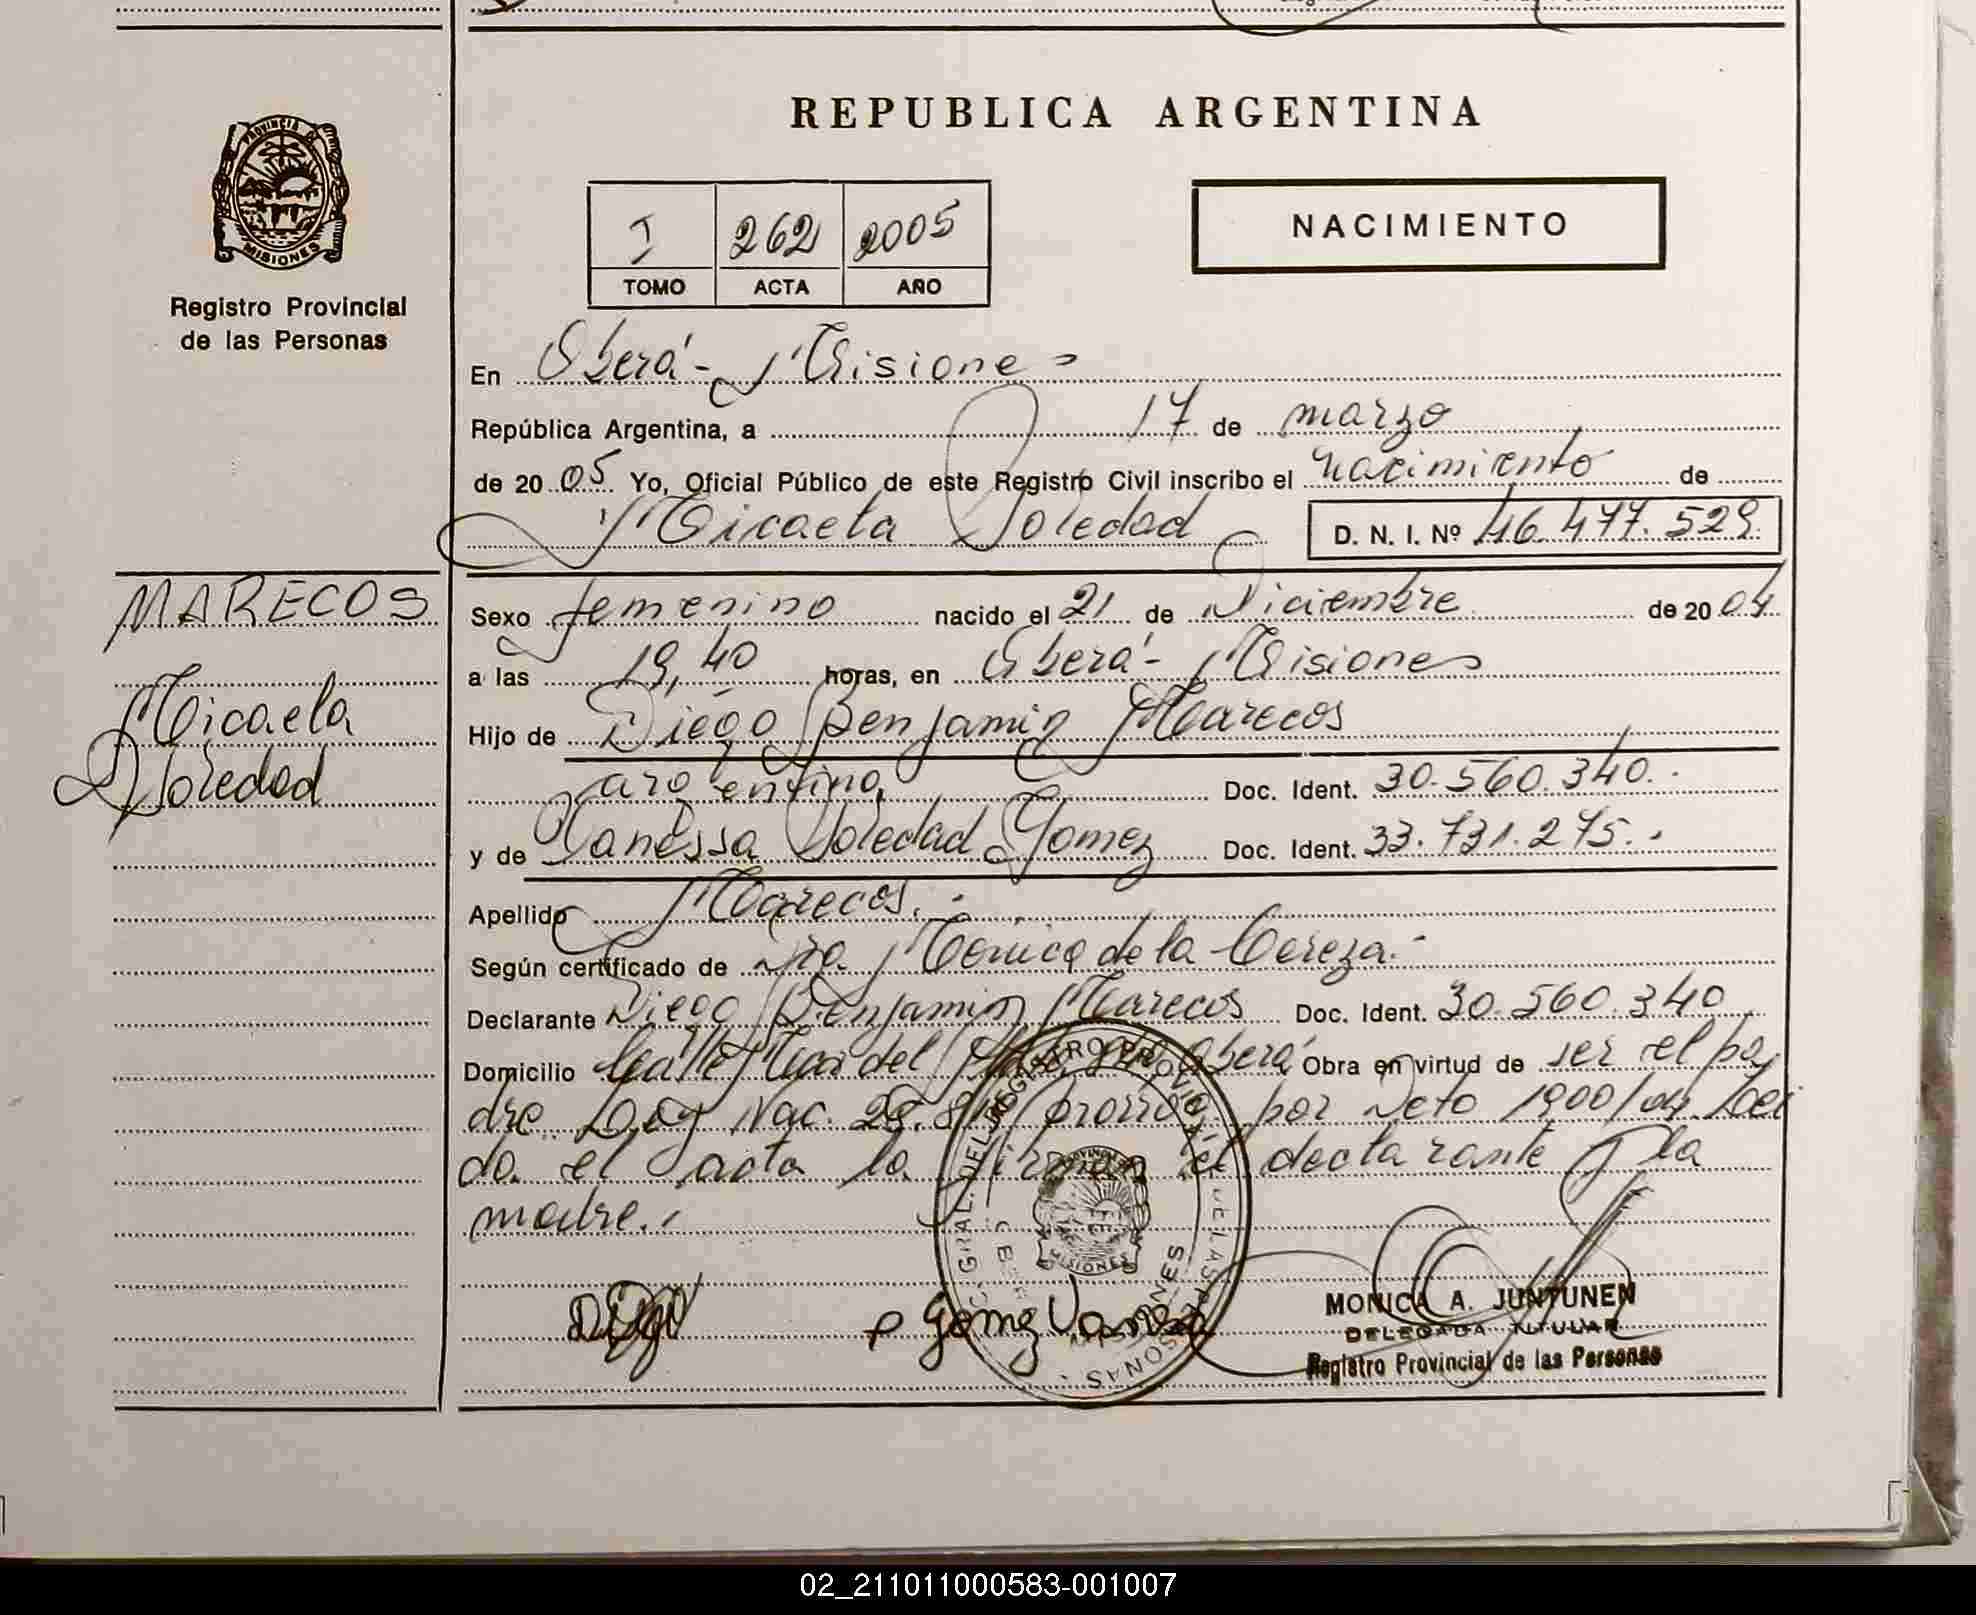 REPUBLICA ARGENTINA
PROVINCIA DE
MISIONES
Registro Provincial
de las Personas
I 262 2005
TOMO ACTA AÑO
NACIMIENTO
En Oberá - Misiones
República Argentina, a 17 de marzo
de 20 05 Yo, Oficial Público de este Registro Civil inscribo el nacimiento de
Micaela Soledad D. N. I. Nº 46.477.529.
MARECOS
Micaela
Soledad
Sexo femenino nacido el 21 de Diciembre de 20 04
a las 19,40 horas, en Oberá - Misiones
Hijo de Diego Benjamin Marecos
argentino, Doc. Ident. 30.560.340.
y de Vanessa Soledad Gomez Doc. Ident. 33.731.275.
Apellido Marecos.
Según certificado de Dra. Monica de la Cereza.
Declarante Diego Benjamin Marecos Doc. Ident. 30.560.340
Domicilio Calle Mar del Oberá Obra en virtud de ser el pa
dre. Ley Nac. por Dcto 1900/04 Lei
da el acta la firman el declarante y la
madre.
Diego
Gomez Vanesa
MONICA A. JUNTUNEN
DELEGADA TITULAR
Registro Provincial de las Personas
02_211011000583-001007